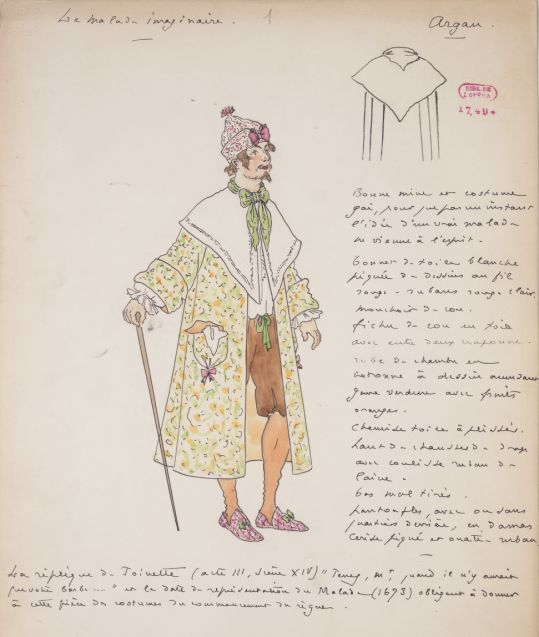 Le malade imaginaire. 1 Argan.
BIBL. DE
L'OPERA
17,49*
Bonne mine et costume
gai, pour que pas un instant
l'idée d'un vrai malade
ne vienne à l'esprit.
bonnet de toile blanche
piquée de dessins au fil
rouge - rubans rouge clair.
mouchoir de cou.
fichu de cou en toile
avec
robe de chambre en
cotonne à dessin
genre verdure avec fruits
oranges.
Chemise toile à plissés.
haut-de-chausses de drap
avec coulisse ruban de
laine.
bas mal tirés.
Pantoufles, avec ou sans
quartiers derrière, en damas
cerise piqué et ouaté - ruban
La réplique de Toinette (acte III, scène XIV) "Tenez, Mr, quand il n'y aurait
que votre barbe ...." et la date de représentation du Malade (1673) obligent à donner
à cette pièce des costumes du commencement du règne.